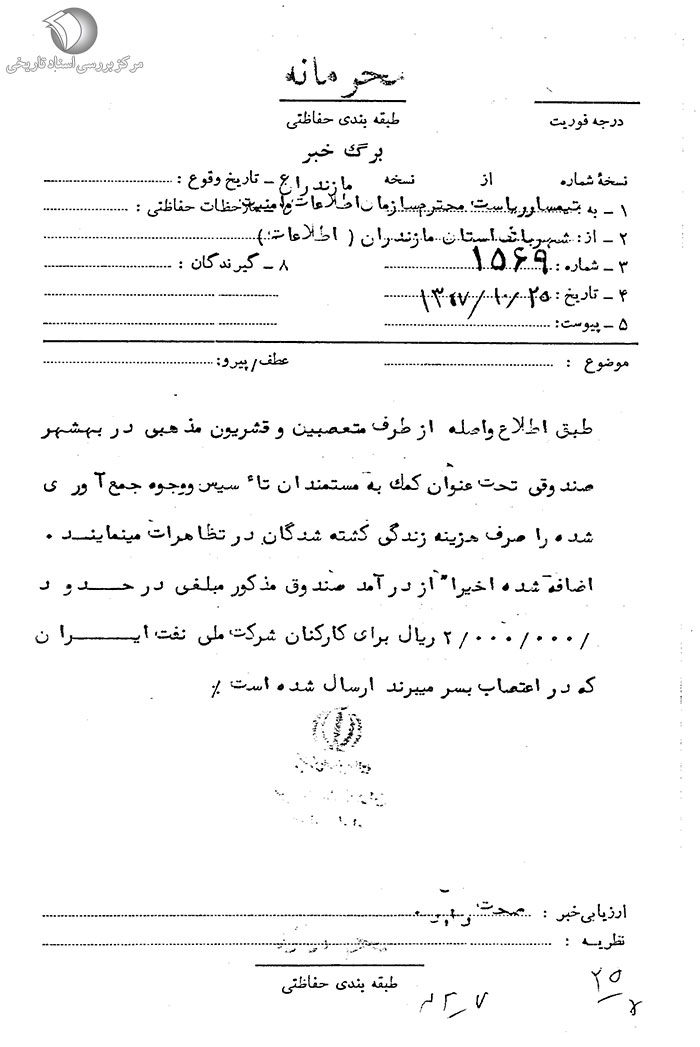 مرکز بررسی اسناد تاریخی
محرمانه
طبقه بندی حفاظتی
درجه فوریت
برگ خبر
نسخهٔ شماره از نسخه
۱ ـ به تیمسار ریاست محترم سازمان اطلاعات وامنیت مازندران
۲ ـ از: شهربانی استان مازندران ( اطلاعات )
۳ ـ شماره: ۱۵۶۹
۴ ـ تاریخ: ۱۳۵۷/۱۰/۲۵
۵ ـ پیوست:
ـ تاریخ وقوع :
ملاحظات حفاظتی :
۸ ـ گیرندگان :
موضوع :
عطف/پیرو:
طبق اطلاع واصله از طرف متعصبین و قشریون مذهبی در بهشهر
صندوقی تحت عنوان کمک به مستمندان تاء سیس ووجوه جمع آوری
شده را صرف هزینه زندگی کشته شدگان در تظاهرات مینمایند .
اضافه شده اخیرا" از درآمد صندوق مذکور مبلغی در حدود
/۲/۰۰۰/۰۰۰ ریال برای کارکنان شرکت ملی نفت ایران
که در اعتصاب بسر میبرند ارسال شده است ٪
ارزیابی خبر : صحت دارد .
نظریه :
طبقه بندی حفاظتی